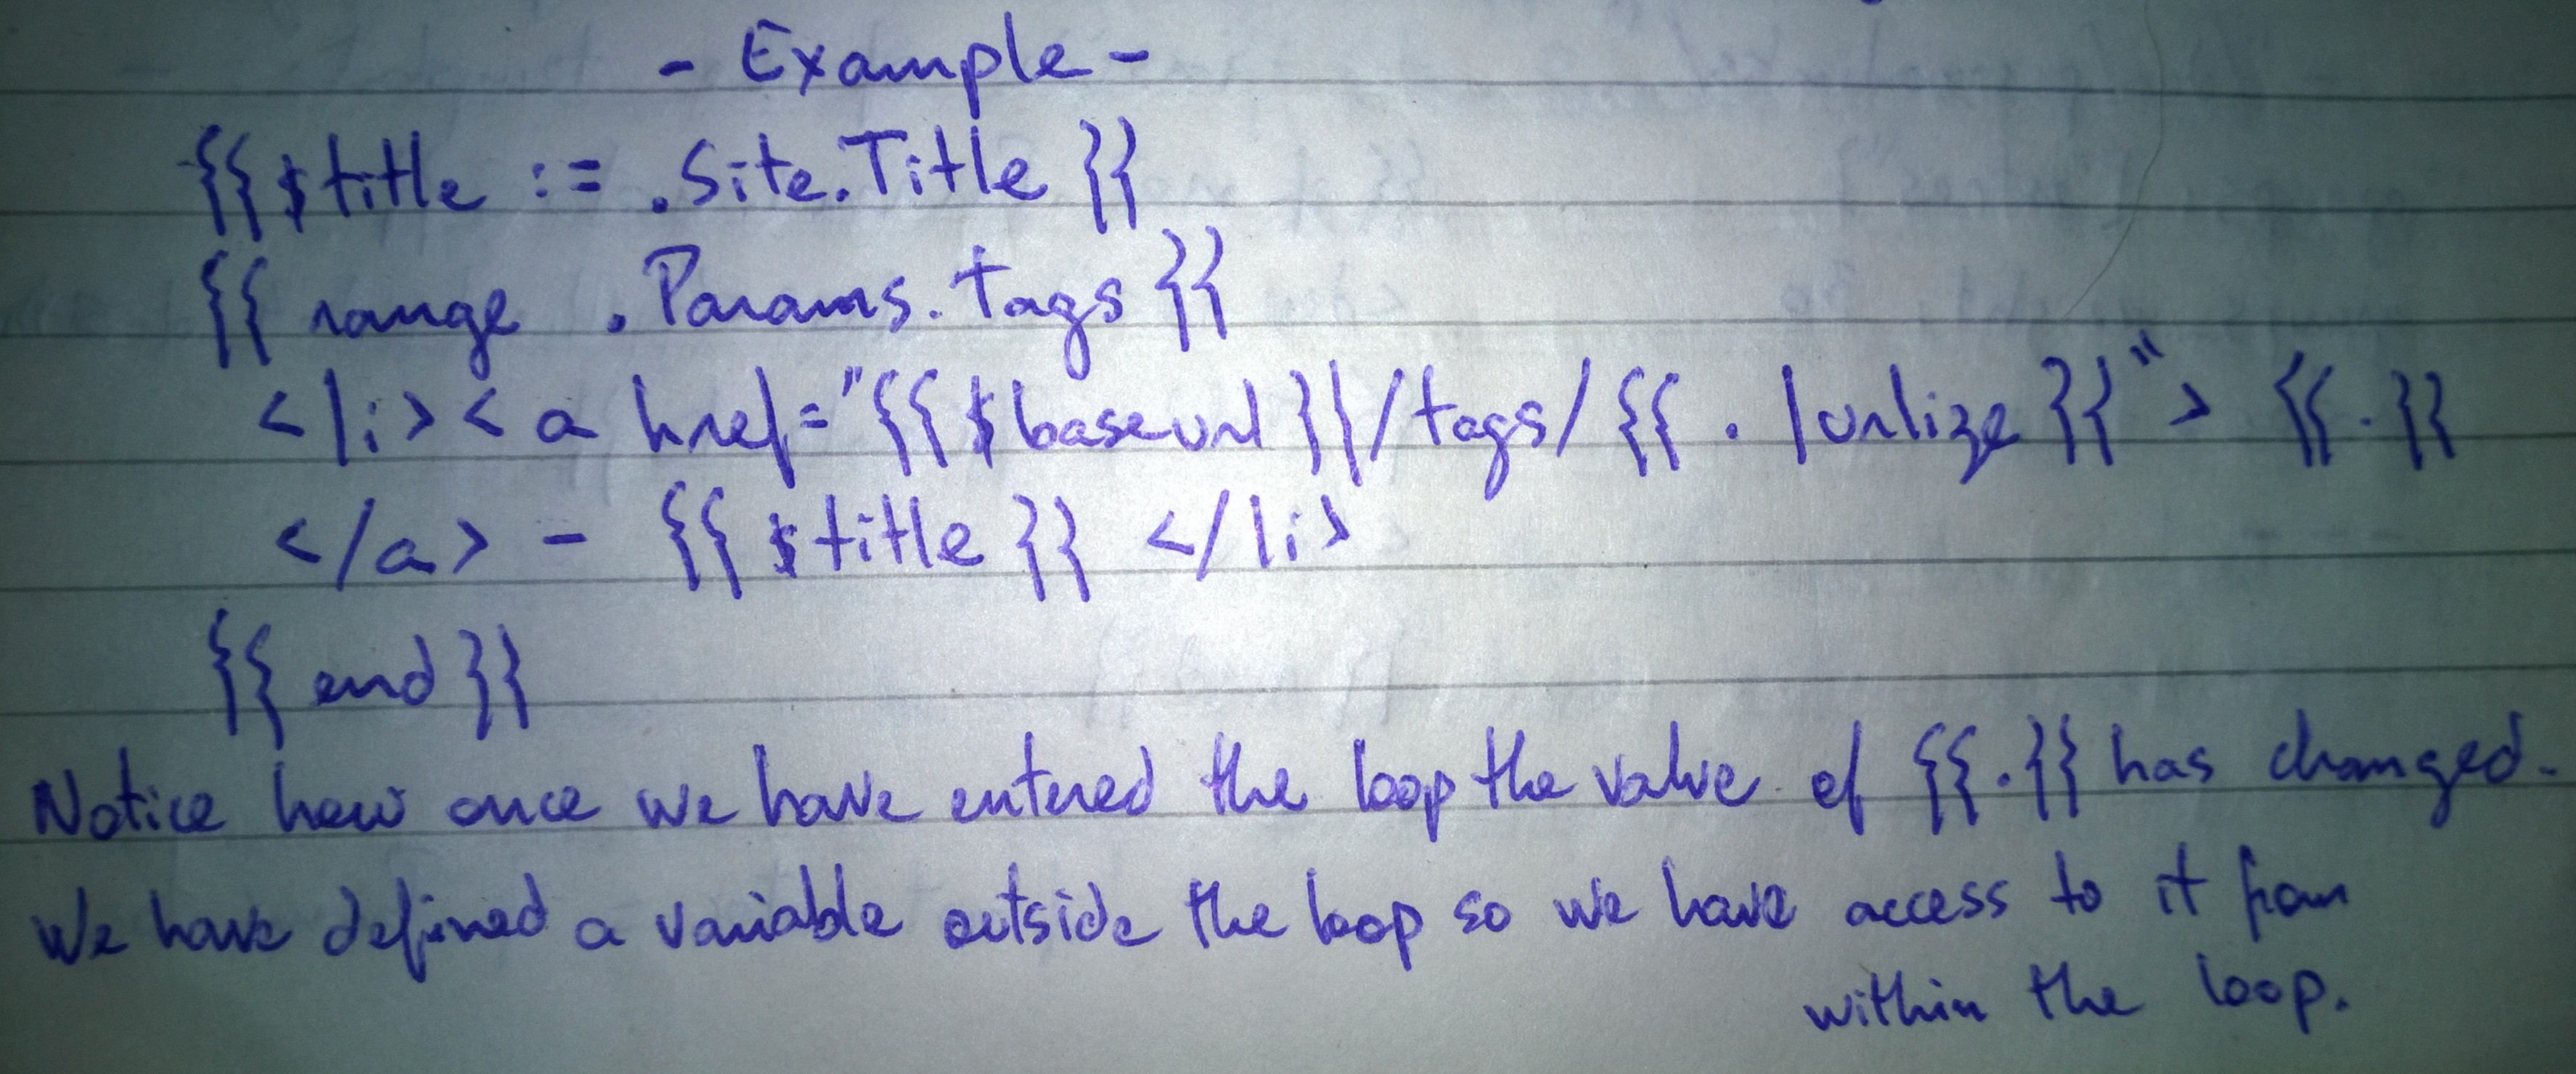 - Example -
{{$title := .Site.Title }}
{{ range .Params.tags }}
<li><a href="{{$baseurl}}/tags/{{ . | urlize }}"> {{.}}
</a> - {{ $title }} </li>
{{ end }}
Notice how once we have entered the loop the value of {{.}} has changed.
We have defined a variable outside the loop so we have access to it from
within the loop.